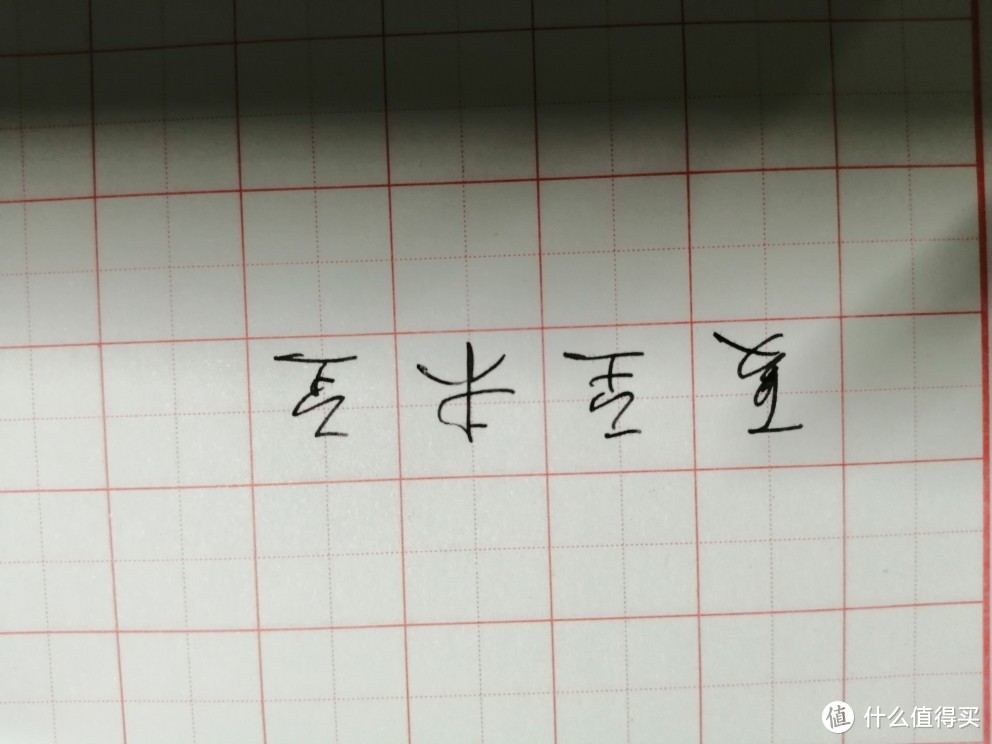 夏至未至
值 什么值得买